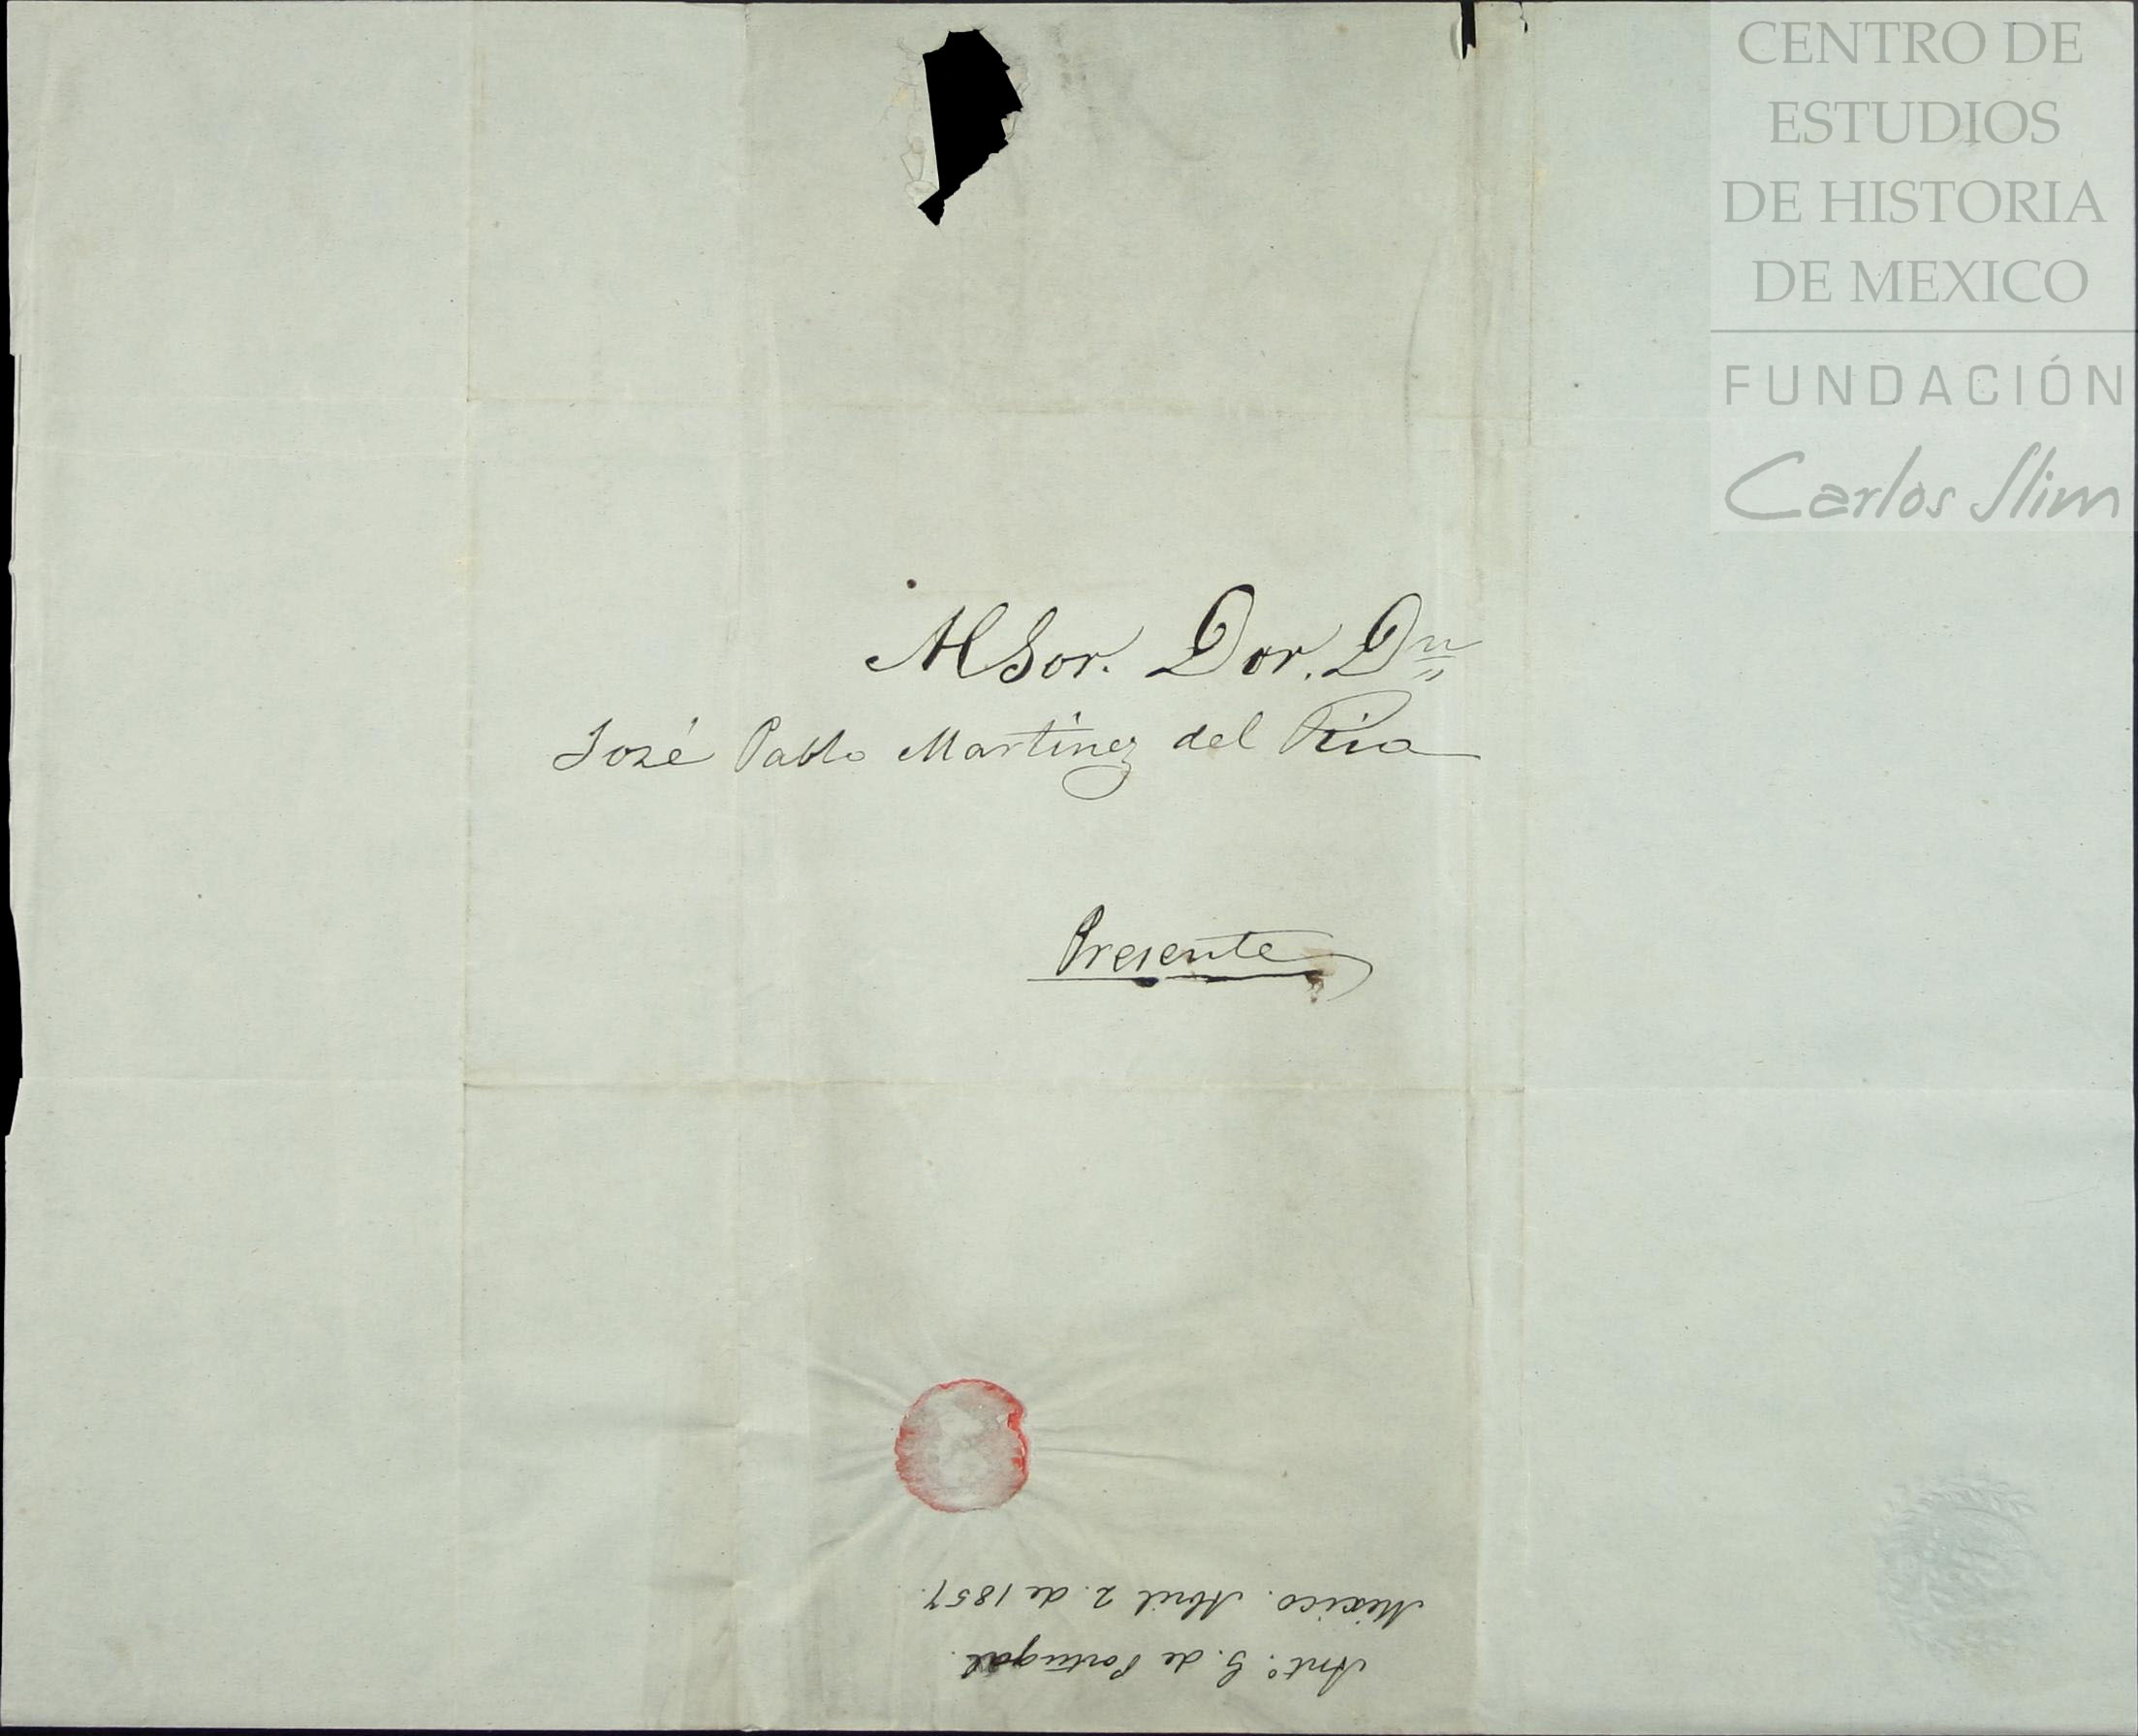 CENTRO DE
ESTUDIOS
DE HISTORIA
DE MEXICO
FUNDACIÓN
Carlos Slim
Al Sor. Dor. Dn
José Pablo Martinez del Rio
Presente
Anto. G. de Portugal.
Mexico. Abril 2. de 1857.